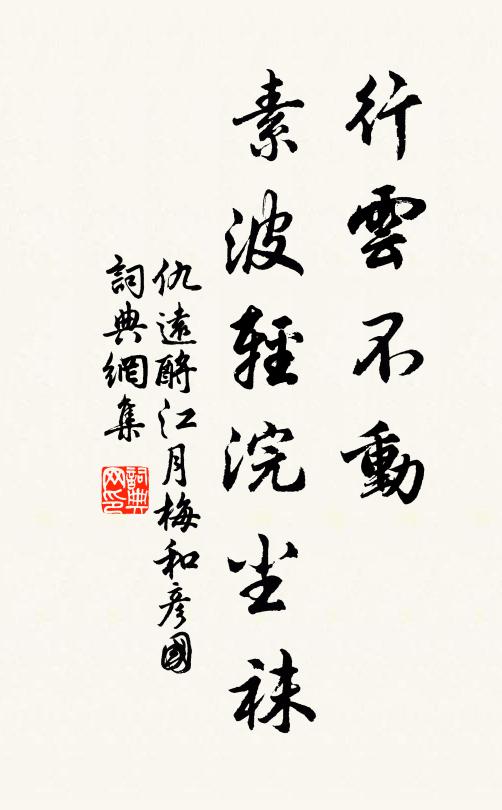 行雲不動
素波輕浣尘袜
仇遠酹江月梅和彥國
詞典網集
詞典
网印